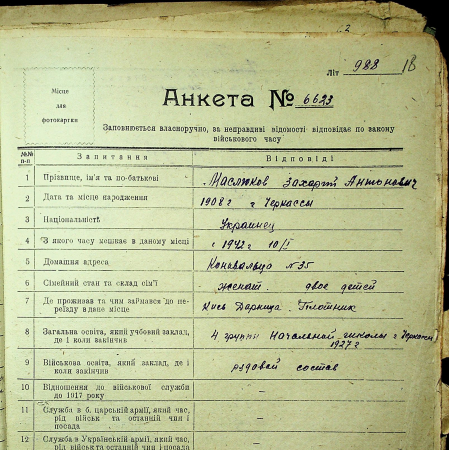 Літ 988 18
Місце
для
фотокартки
Анкета № 6623
Заповнюється власноручно, за неправдиві відомості відповідає по закону
військового часу
№№ п-п Запитання Відповіді
1 Прізвище, ім'я та по-батькові Маслюков Захарий Антонович
2 Дата та місце народження 1908 г г Черкассы
3 Національність Украинец
4 З якого часу мешкає в даному місці с 1942 10/I
5 Домашня адреса №35
6 Сімейний стан та склад сім'ї женат. двое детей
7 Де проживав та чим займався до пе-
реїзду в дане місце Дарница. Плотник
8 Загальна освіта, який учбовий заклад,
де і коли закінчив 4 группы Начальной школы г Черкассы
1927 г
9 Військова освіта, який заклад, де і
коли закінчив рядовой состав
10 Відношення до військової служби
до 1917 року –
11 Служба в б. царській армії, який час,
рід військ та останній чин і
посада –
12 Служба в Українській армії, який час,
рід військ та останній чин і –